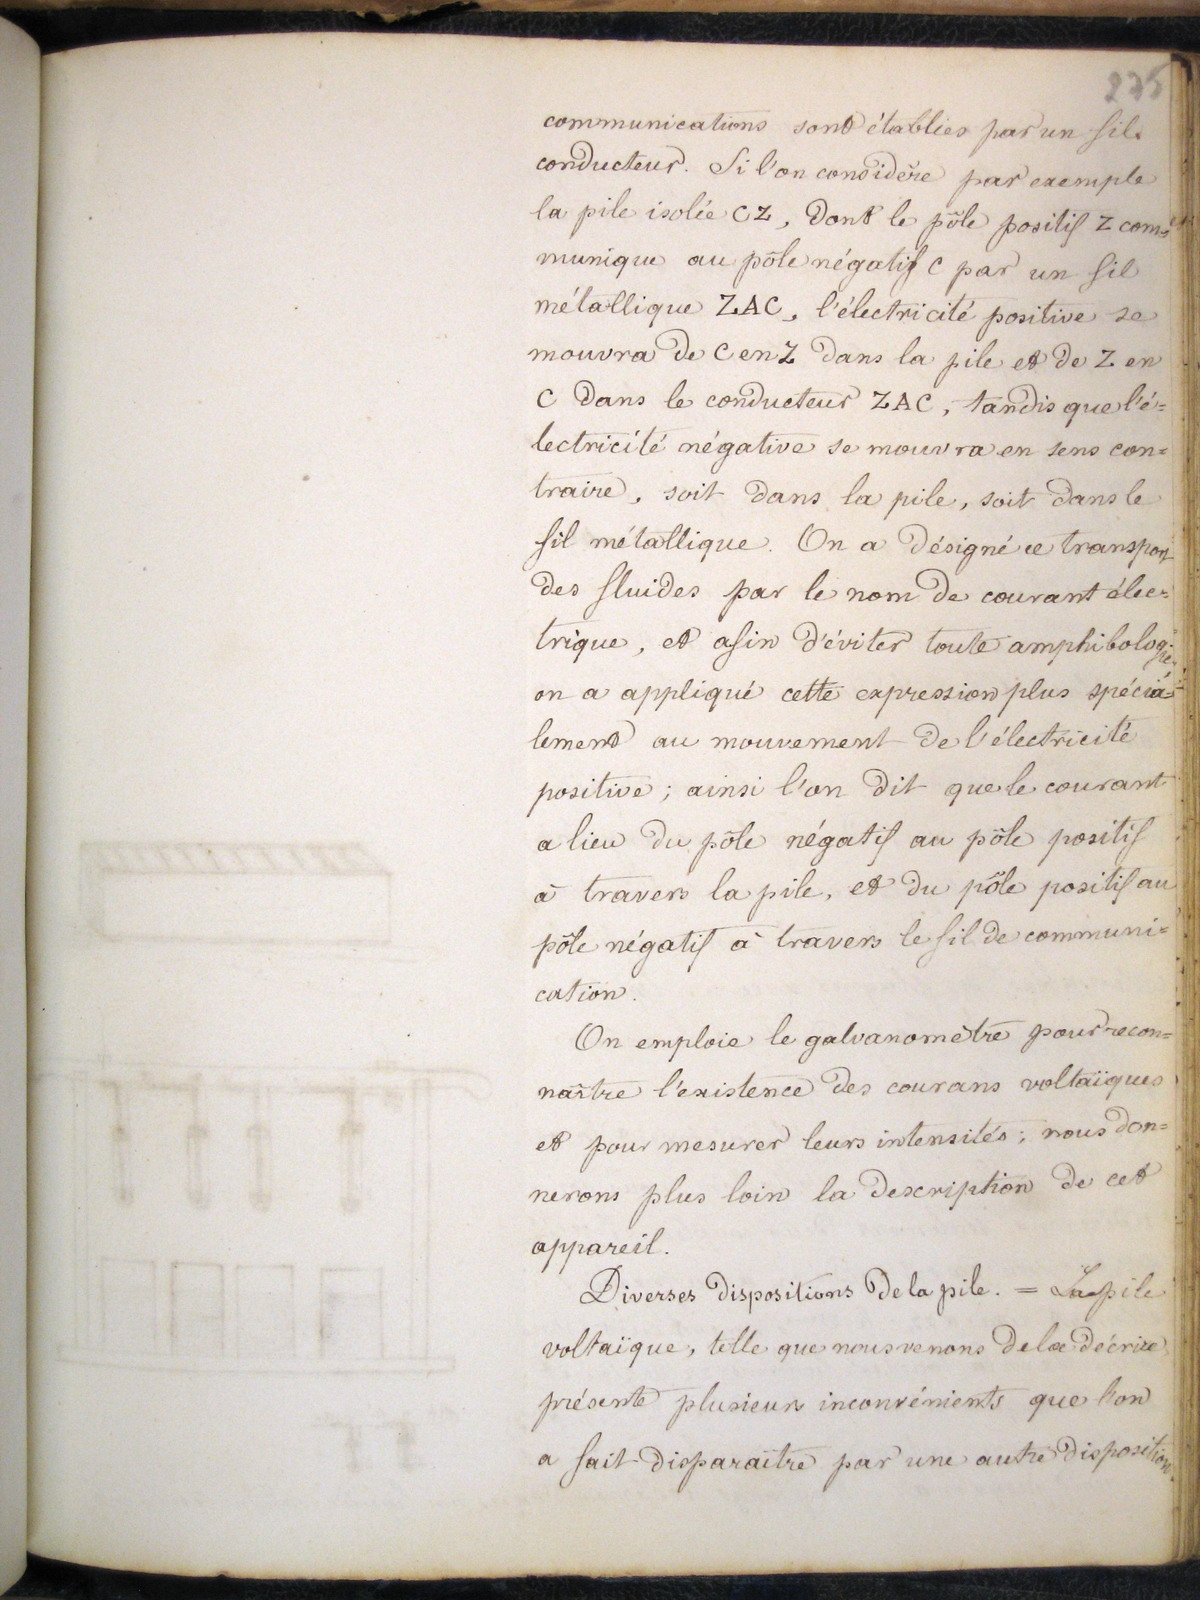 275
communications sont établies par un fil
conducteur. Si l'on considère par exemple
la pile isolée CZ, dont le pôle positif Z com=
munique au pôle négatif C par un fil
métallique ZAC, l'électricité positive se
mouvra de C en Z dans la pile et de Z en
C dans le conducteur ZAC, tandis que l'é=
lectricité négative se mouvra en sens con=
traire, soit dans la pile, soit dans le
fil métallique. On a désigné ce transport
des fluides par le nom de courant élec=
trique, et afin d'éviter toute amphibologie
on a appliqué cette expression plus spécia=
lement au mouvement de l'électricité
positive ; ainsi l'on dit que le courant
a lieu du pôle négatif au pôle positif
à travers la pile, et du pôle positif au
pôle négatif à travers le fil de communi=
cation.
On emploie le galvanomètre pour recon=
naître l'existence des courans voltaïques
et pour mesurer leurs intensités ; nous don=
nerons plus loin la description de cet
appareil.
Diverses dispositions de la pile. = La pile
voltaïque, telle que nous venons de la décrire
présente plusieurs inconvénients que l'on
a fait disparaître par une autre disposition.